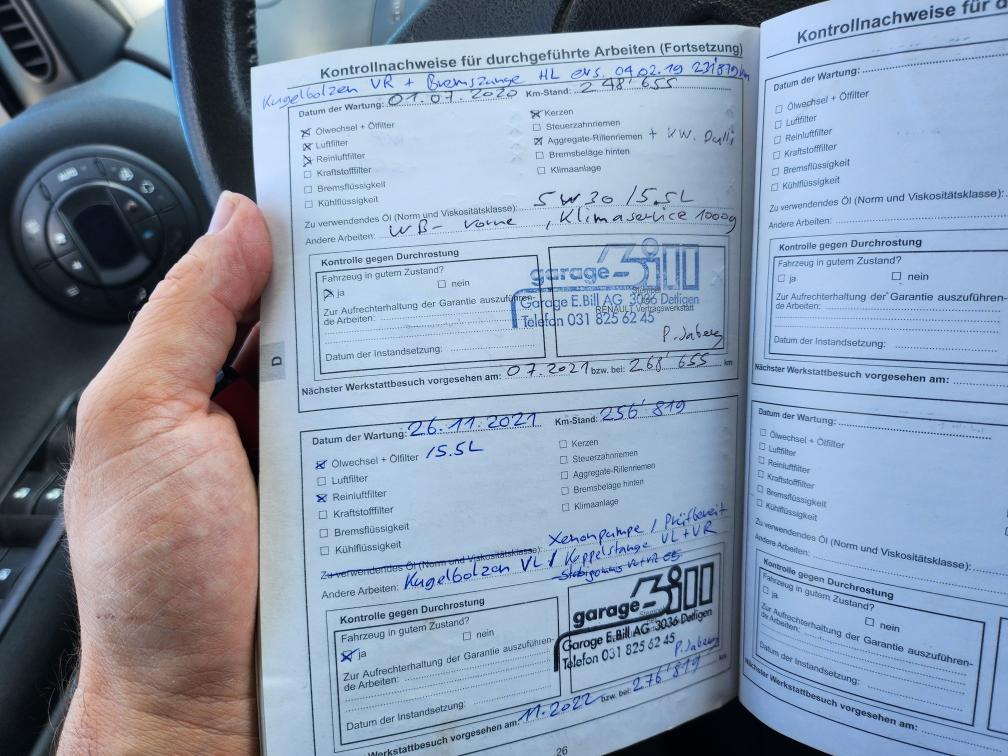 Kontrollnachweise für durchgeführte Arbeiten (Fortsetzung)
Kugelbolzen VR + Bremszange HL ers. 04.02.19 231'819 km
Datum der Wartung: 01.07.2020 Km-Stand: 248'655
Ölwechsel + Ölfilter
Luftfilter
Reinluftfilter
Kraftstofffilter
Bremsflüssigkeit
Kühlflüssigkeit
Kerzen
Steuerzahnriemen
Aggregate-Rillenriemen + KW.
Bremsbeläge hinten
Klimaanlage
Zu verwendendes Öl (Norm und Viskositätsklasse): 5W30 /5.5L
Andere Arbeiten: WB- vorne, Klimaservice 1000g
Kontrolle gegen Durchrostung
Fahrzeug in gutem Zustand?
ja nein
Zur Aufrechterhaltung der Garantie auszuführen-
de Arbeiten:
Datum der Instandsetzung:
garage Bill
Garage E.Bill AG 3036 Detligen
RENAULT Vertragswerkstatt
Telefon 031 825 62 45
P. Jaberg
D
Nächster Werkstattbesuch vorgesehen am: 07.2021 bzw. bei: 268'655 km
Datum der Wartung: 26.11.2021 Km-Stand: 256'819
Ölwechsel + Ölfilter /5.5L
Luftfilter
Reinluftfilter
Kraftstofffilter
Bremsflüssigkeit
Kühlflüssigkeit
Kerzen
Steuerzahnriemen
Aggregate-Rillenriemen
Bremsbeläge hinten
Klimaanlage
Zu verwendendes Öl (Norm und Viskositätsklasse): Xenonpumpe / Prüfbereit
Andere Arbeiten: Kugelbolzen VL / Koppelstange VL+VR
Kontrolle gegen Durchrostung
Fahrzeug in gutem Zustand?
ja nein
Zur Aufrechterhaltung der Garantie auszuführen-
de Arbeiten:
Datum der Instandsetzung:
garage Bill
Garage E.Bill AG 3036 Detligen
Telefon 031 825 62 45
P. Jaberg
Werkstattbesuch vorgesehen am: 11.2022 bzw. bei: 276'819 km
26
Kontrollnachweise für d
Datum der Wartung:
Ölwechsel + Ölfilter
Luftfilter
Reinluftfilter
Kraftstofffilter
Bremsflüssigkeit
Kühlflüssigkeit
Zu verwendendes Öl (Norm und Viskositätsklasse):
Andere Arbeiten:
Kontrolle gegen Durchrostung
Fahrzeug in gutem Zustand?
ja nein
Zur Aufrechterhaltung der Garantie auszuführen-
de Arbeiten:
Datum der Instandsetzung:
Nächster Werkstattbesuch vorgesehen am:
Datum der Wartung:
Ölwechsel + Ölfilter
Luftfilter
Reinluftfilter
Kraftstofffilter
Bremsflüssigkeit
Kühlflüssigkeit
Zu verwendendes Öl (Norm und Viskositätsklasse):
Andere Arbeiten:
Kontrolle gegen Durchrostung
Fahrzeug in gutem Zustand?
ja nein
Zur Aufrechterhaltung der Garantie auszuführen-
de Arbeiten:
Datum der Instandsetzung:
Nächster Werkstattbesuch vorgesehen am:
AUTO